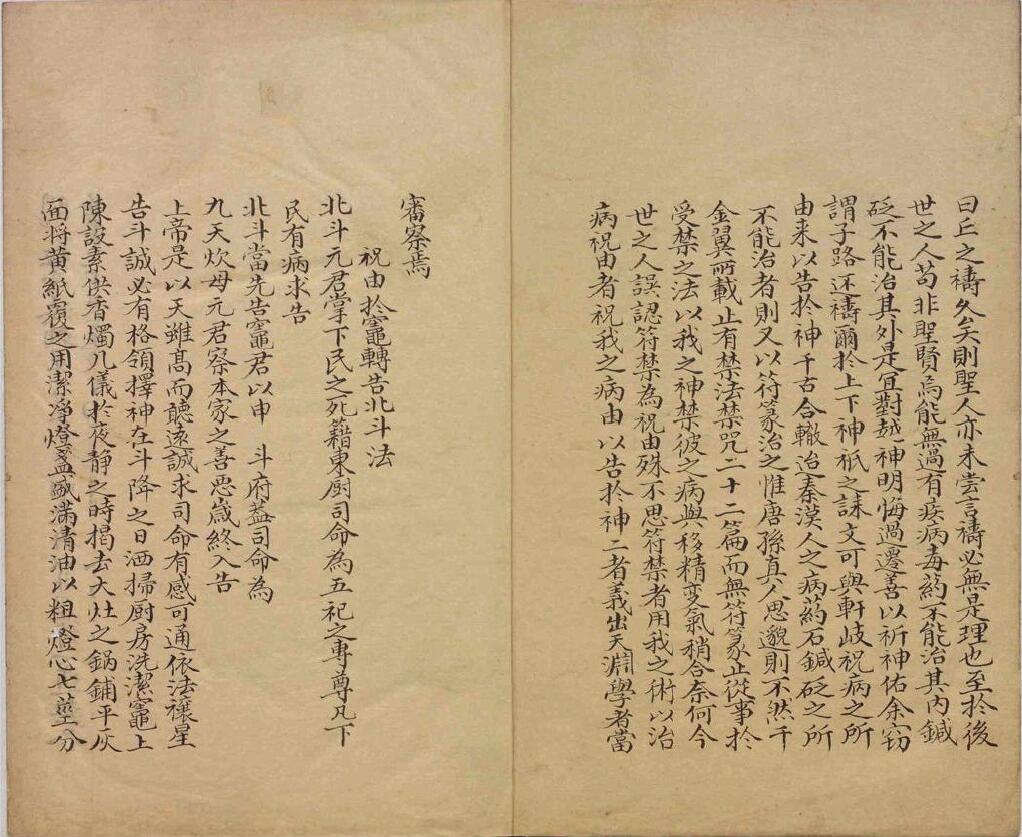 曰丘之禱久矣則聖人亦未嘗言禱必無是理也至於後
世之人苟非聖賢烏能無過有疾病毒葯不能治其內鍼
砭不能治其外是宜對越神明悔過遷善以祈神佑余竊
謂子路还禱爾於上下神祇之誄文可與軒岐祝病之所
由来以告於神千古合轍迨秦漢人之病葯石鍼砭之所
不能治者則又以符篆治之惟唐孫真人思邈則不然千
金翼所載止有禁法禁咒二十二篇而無符篆止從事於
受禁之法以我之神禁彼之病與移精变氣稍合奈何今
世之人誤認符禁為祝由殊不思符禁者用我之術以治
病祝由者祝我之病由以告於神二者義出天淵學者當
審察焉
祝由於竈轉告北斗法
北斗元君掌下民之死籍東厨司命為五祀之專尊凡下
民有病求告
北斗當先告竈君以申 斗府蓋司命為
九天炊母元君察本家之善悪歳終入告
上帝是以天雖髙而聽遠誠求司命有感可通依法禳星
告斗誠必有格領擇神在斗降之日洒掃厨房洗潔竈上
陳設素供香燭几儀於夜静之時揭去大灶之鍋鋪平灰
面将黄紙覆之用潔凈燈盞盛滿清油以粗燈心七莖分